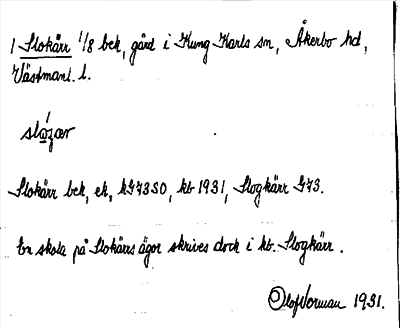 1 Slokärr 1/8 bek, gård i Kung Karls sn, Åkerbo hd,
Västmanl. l.
slózær
Slokärr bek, ek, kGF3SO, kb 1931, Slogkärr GF3.
En skola på Slokärrs ägor skrives dock i kb. Slogkärr.
Olof Norman 1931.